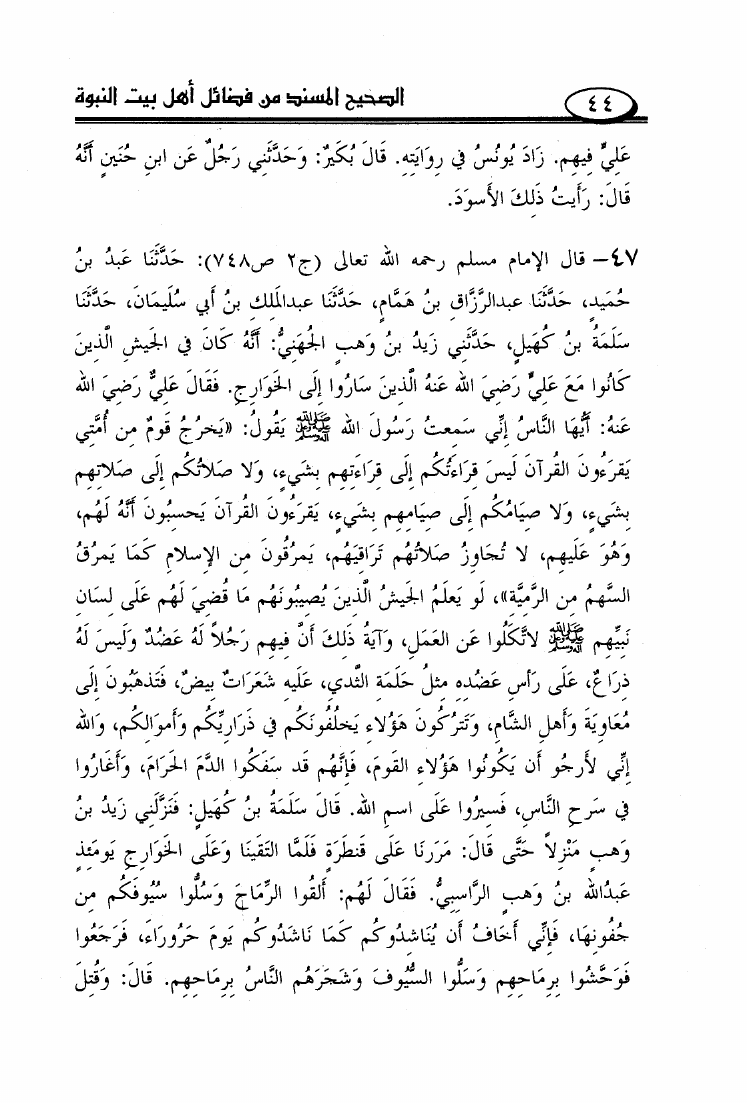 ٤٤ الصحيح المسند من فضائل أهل بيت النبوة
عَلِيٌّ فِيهِم. زَادَ يُونُسُ فِي رِوَايَتِهِ. قَالَ بُكَيرٌ: وَحَدَّثَنِي رَجُلٌ عَن ابنِ حُنَينٍ أَنَّهُ
قَالَ: رَأَيتُ ذَلِكَ الأَسوَدَ.
٤٧- قال الإمام مسلم رحمه الله تعالى (ج٢ ص٧٤٨): حَدَّثَنَا عَبدُ بنُ
حُمَيدٍ، حَدَّثَنَا عبدالرَّزَّاقِ بنُ هَمَّامٍ، حَدَّثَنَا عبدالمَلِكِ بنُ أَبي سُلَيمَانَ، حَدَّثَنَا
سَلَمَةُ بنُ كُهَيلٍ، حَدَّثَنِي زَيدُ بنُ وَهبٍ الجُهَنِيُّ: أَنَّهُ كَانَ فِي الجَيشِ الَّذينَ
كَانُوا مَعَ عَلِيٍّ رَضِيَ الله عَنهُ الَّذينَ سَارُوا إِلَى الخَوَارِجِ. فَقَالَ عَلِيٌّ رَضِيَ الله
عَنهُ: أَيُّهَا النَّاسُ إِنِّي سَمِعتُ رَسُولَ الله ﷺ يَقُولُ: «يَخرُجُ قَومٌ مِن أُمَّتِي
يَقرَءُونَ القُرآنَ لَيسَ قِرَاءَتُكُم إِلَى قِرَاءَتِهِم بِشَيءٍ، وَلا صَلاتُكُم إِلَى صَلاتِهِم
بِشَيءٍ، وَلا صِيَامُكُم إِلَى صِيَامِهِم بِشَيءٍ، يَقرَءُونَ القُرآنَ يَحسِبُونَ أَنَّهُ لَهُم،
وَهُوَ عَلَيهِم، لا تُجَاوِزُ صَلاتُهُم تَرَاقِيَهُم، يَمرُقُونَ مِن الإِسلامِ كَمَا يَمرُقُ
السَّهمُ مِن الرَّمِيَّةِ»، لَو يَعلَمُ الجَيشُ الَّذينَ يُصِيبُونَهُم مَا قُضِيَ لَهُم عَلَى لِسَانِ
نَبِيِّهِم ﷺ لاتَّكَلُوا عَن العَمَلِ، وَآيَةُ ذَلِكَ أَنَّ فِيهِم رَجُلاً لَهُ عَضُدٌ وَلَيسَ لَهُ
ذِرَاعٌ، عَلَى رَأسِ عَضُدِهِ مِثلُ حَلَمَةِ الثَّديِ، عَلَيهِ شَعَرَاتٌ بِيضٌ، فَتَذهَبُونَ إِلَى
مُعَاوِيَةَ وَأَهلِ الشَّامِ، وَتَترُكُونَ هَؤُلاءِ يَخلُفُونَكُم فِي ذَرَارِيِّكُم وَأَموَالِكُم، وَالله
إِنِّي لأَرجُو أَن يَكُونُوا هَؤُلاءِ القَومَ، فَإِنَّهُم قَد سَفَكُوا الدَّمَ الحَرَامَ، وَأَغَارُوا
فِي سَرحِ النَّاسِ، فَسِيرُوا عَلَى اسمِ الله. قَالَ سَلَمَةُ بنُ كُهَيلٍ: فَنَزَّلَنِي زَيدُ بنُ
وَهبٍ مَنْزِلاً حَتَّى قَالَ: مَرَرنَا عَلَى قَنطَرَةٍ فَلَمَّا التَقَينَا وَعَلَى الخَوَارِجِ يَومَئِذٍ
عَبدُالله بنُ وَهبٍ الرَّاسِبِيُّ. فَقَالَ لَهُم: أَلقُوا الرِّمَاحَ وَسُلُّوا سُيُوفَكُم مِن
جُفُونِهَا، فَإِنِّي أَخَافُ أَن يُنَاشِدُوكُم كَمَا نَاشَدُوكُم يَومَ حَرُورَاءَ، فَرَجَعُوا
فَوَحَّشُوا بِرِمَاحِهِم وَسَلُّوا السُّيُوفَ وَشَجَرَهُم النَّاسُ بِرِمَاحِهِم. قَالَ: وَقُتِلَ